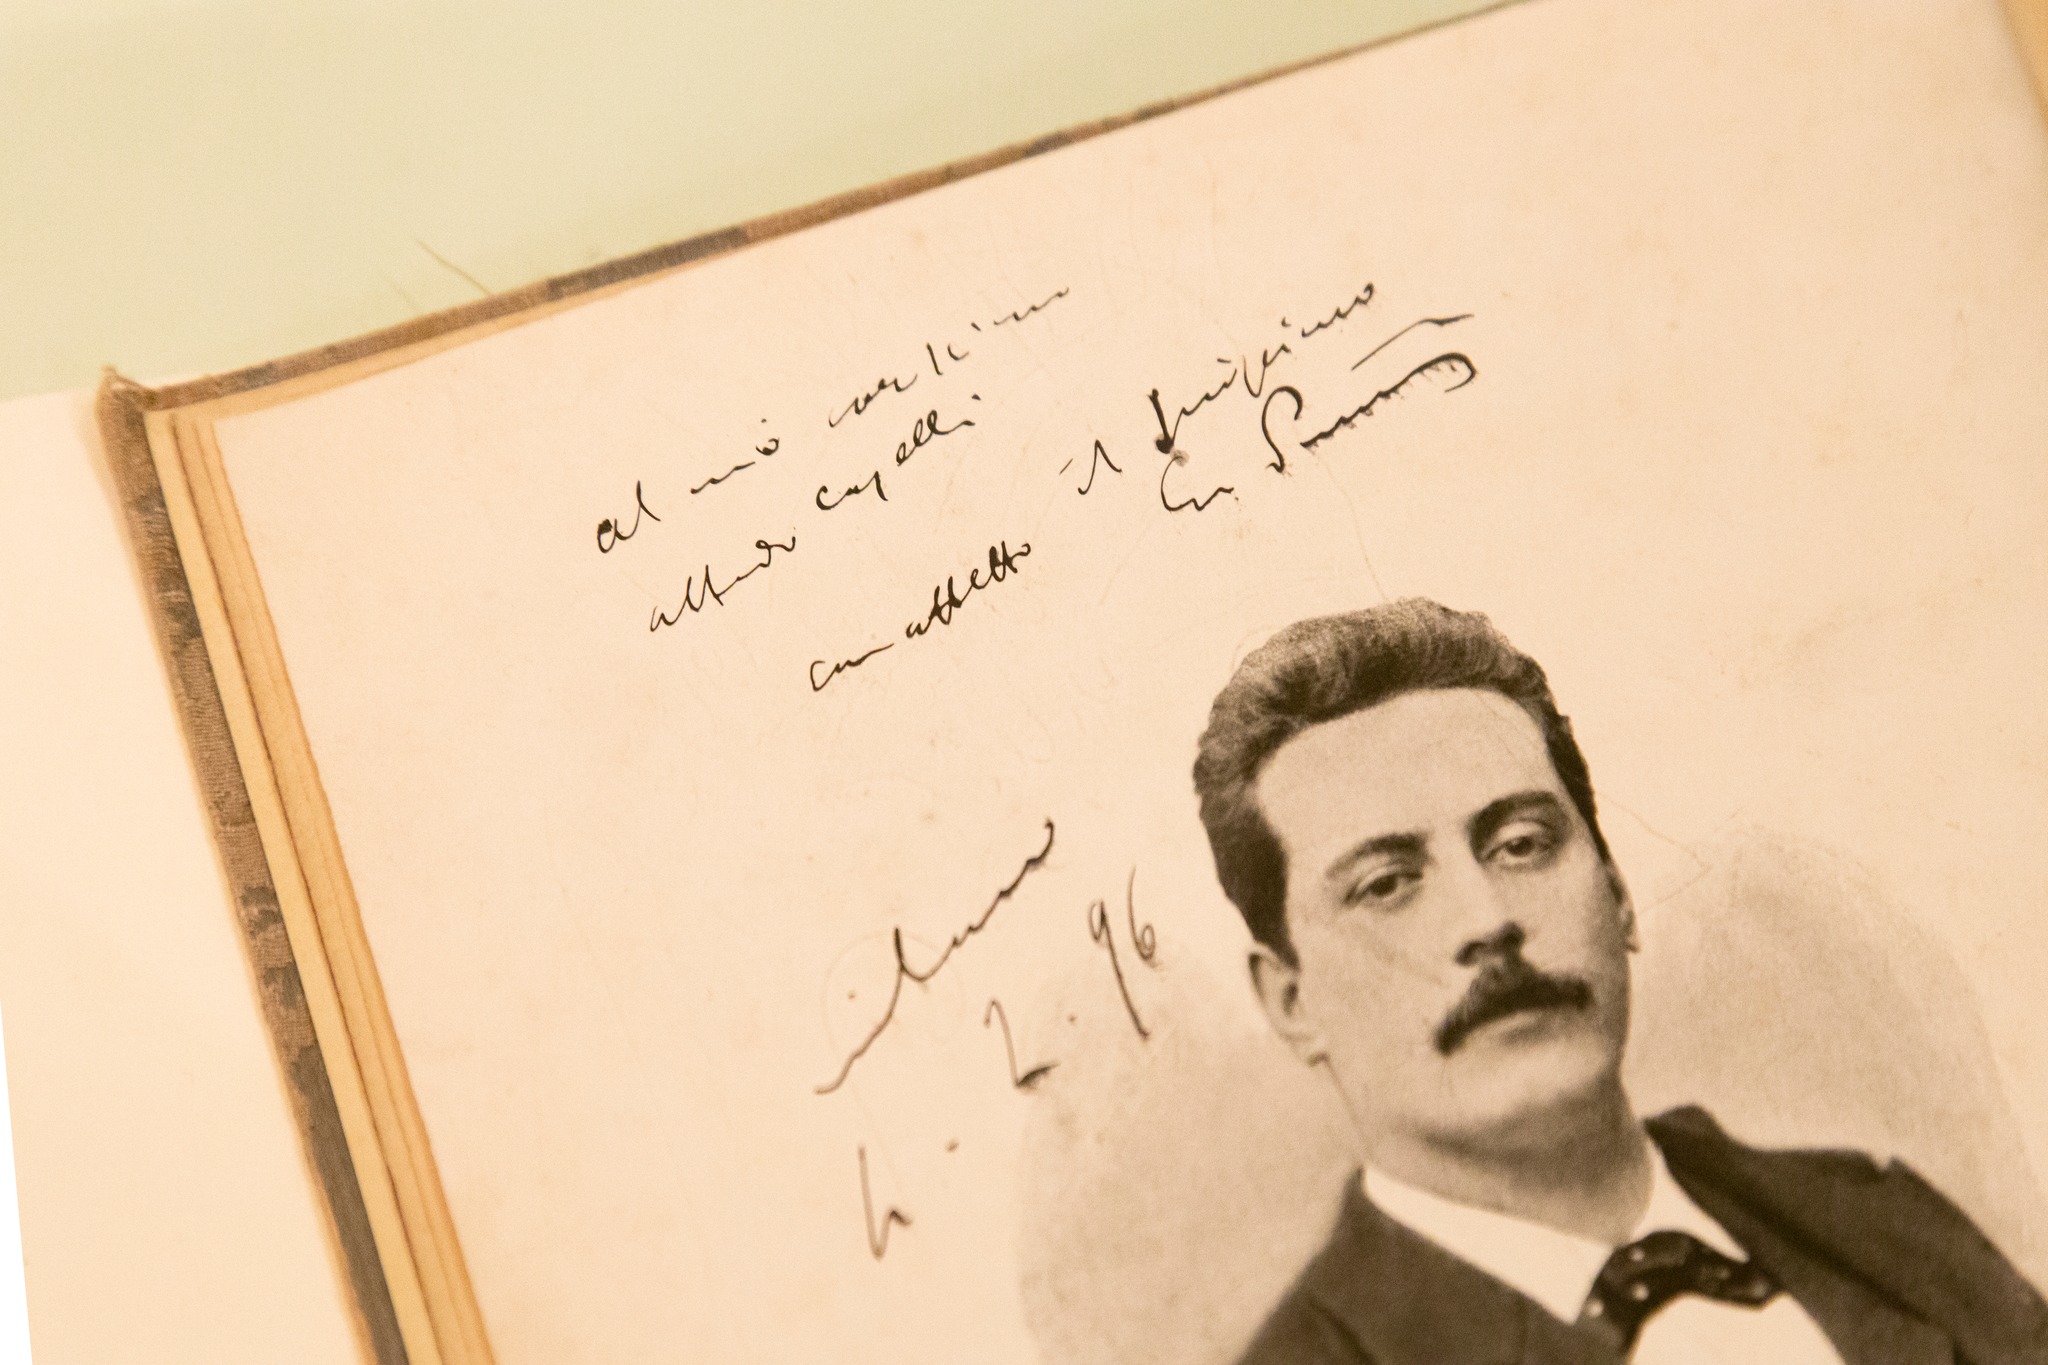 al mio carissimo
alfredo capelli
con affetto il
G. Puccini
Milano
4 - 2 - 96